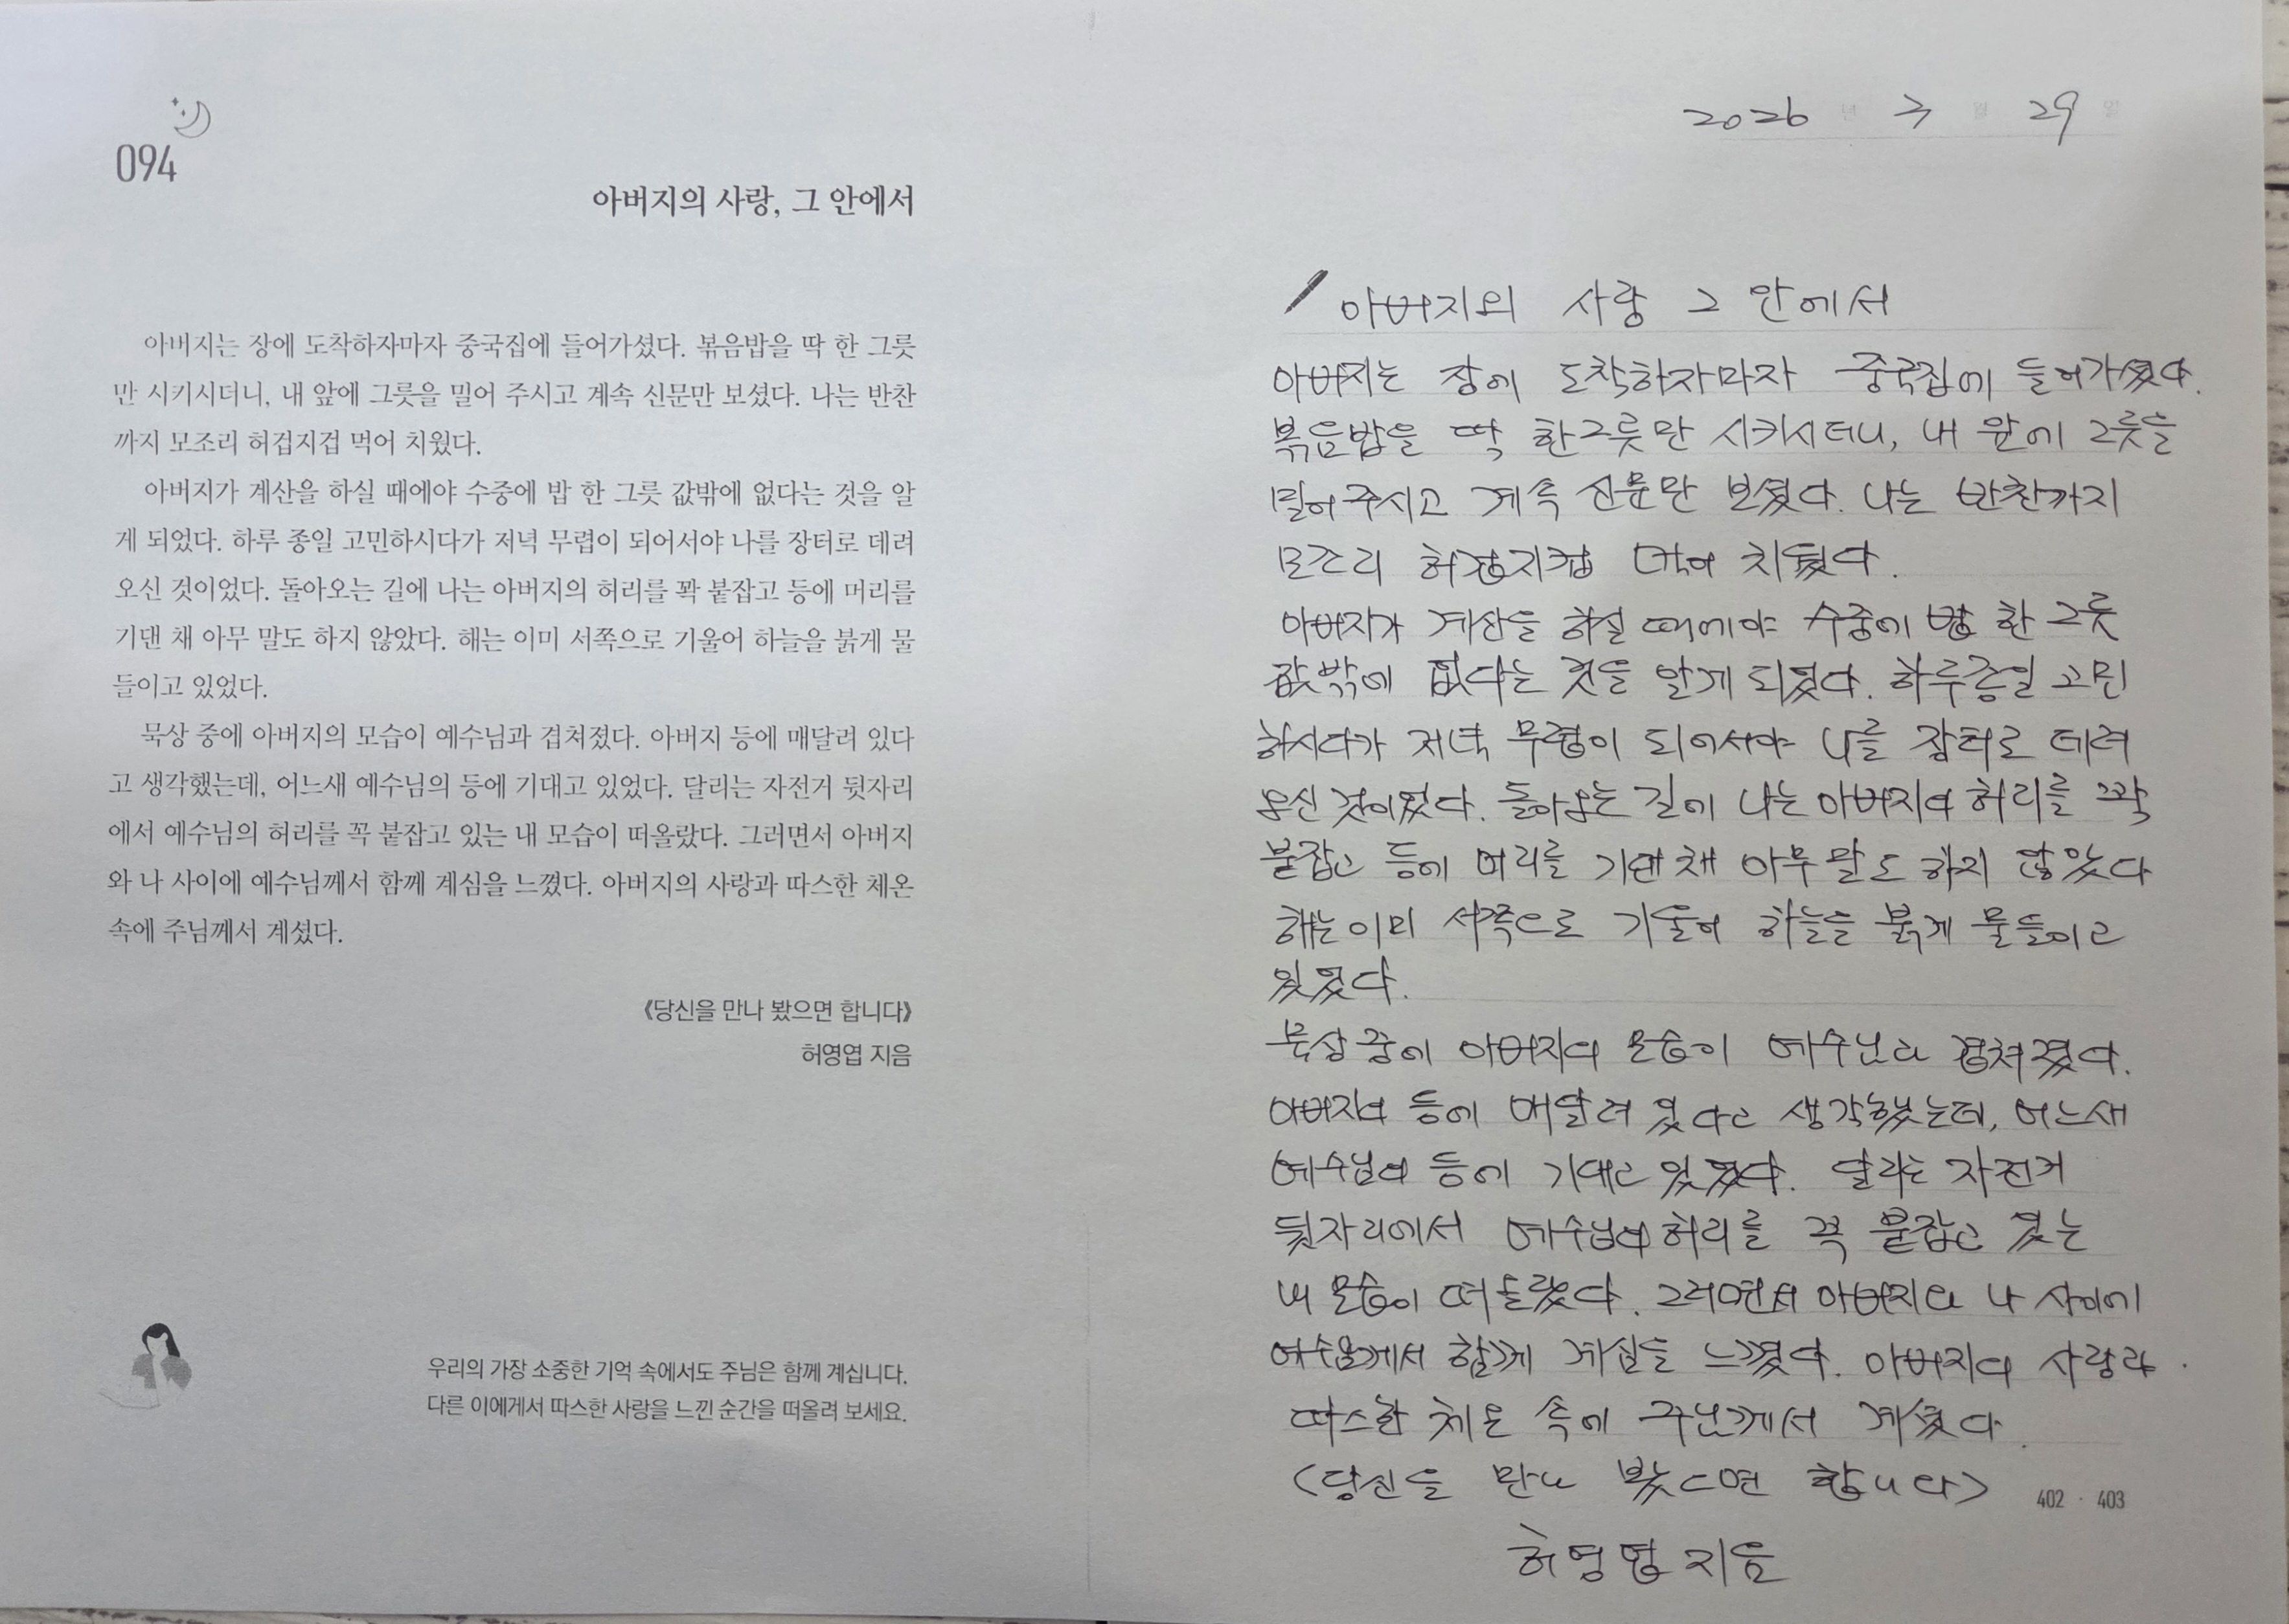 094
아버지의 사랑, 그 안에서
아버지는 장에 도착하자마자 중국집에 들어가셨다. 볶음밥을 딱 한 그릇
만 시키시더니, 내 앞에 그릇을 밀어 주시고 계속 신문만 보셨다. 나는 반찬
까지 모조리 허겁지겁 먹어 치웠다.
아버지가 계산을 하실 때에야 수중에 밥 한 그릇 값밖에 없다는 것을 알
게 되었다. 하루 종일 고민하시다가 저녁 무렵이 되어서야 나를 장터로 데려
오신 것이었다. 돌아오는 길에 나는 아버지의 허리를 꽉 붙잡고 등에 머리를
기댄 채 아무 말도 하지 않았다. 해는 이미 서쪽으로 기울어 하늘을 붉게 물
들이고 있었다.
묵상 중에 아버지의 모습이 예수님과 겹쳐졌다. 아버지 등에 매달려 있다
고 생각했는데, 어느새 예수님의 등에 기대고 있었다. 달리는 자전거 뒷자리
에서 예수님의 허리를 꼭 붙잡고 있는 내 모습이 떠올랐다. 그러면서 아버지
와 나 사이에 예수님께서 함께 계심을 느꼈다. 아버지의 사랑과 따스한 체온
속에 주님께서 계셨다.
《당신을 만나 봤으면 합니다》
허영엽 지음
우리의 가장 소중한 기억 속에서도 주님은 함께 계십니다.
다른 이에게서 따스한 사랑을 느낀 순간을 떠올려 보세요.
2026 년 3 월 29 일
아버지의 사랑 그 안에서
아버지는 장에 도착하자마자 중국집에 들어가셨다.
볶음밥을 딱 한그릇만 시키시더니, 내 앞에 그릇을
밀어 주시고 계속 신문만 보셨다. 나는 반찬까지
모조리 허겁지겁 먹어 치웠다.
아버지가 계산을 하실 때에야 수중에 밥 한 그릇
값밖에 없다는 것을 알게 되었다. 하루종일 고민
하시다가 저녁 무렵이 되어서야 나를 장터로 데려
오신 것이었다. 돌아오는 길에 나는 아버지의 허리를 꽉
붙잡고 등에 머리를 기댄 채 아무 말도 하지 않았다
해는 이미 서쪽으로 기울어 하늘을 붉게 물들이고
있었다.
묵상 중에 아버지의 모습이 예수님과 겹쳐졌다.
아버지의 등에 매달려 있다고 생각했는데, 어느새
예수님의 등에 기대고 있었다. 달리는 자전거
뒷자리에서 예수님의 허리를 꼭 붙잡고 있는
내 모습이 떠올랐다. 그러면서 아버지와 나 사이에
예수님께서 함께 계심을 느꼈다. 아버지의 사랑과
따스한 체온 속에 주님께서 계셨다.
<당신을 만나 봤으면 합니다>
402 · 403
허영엽 지음